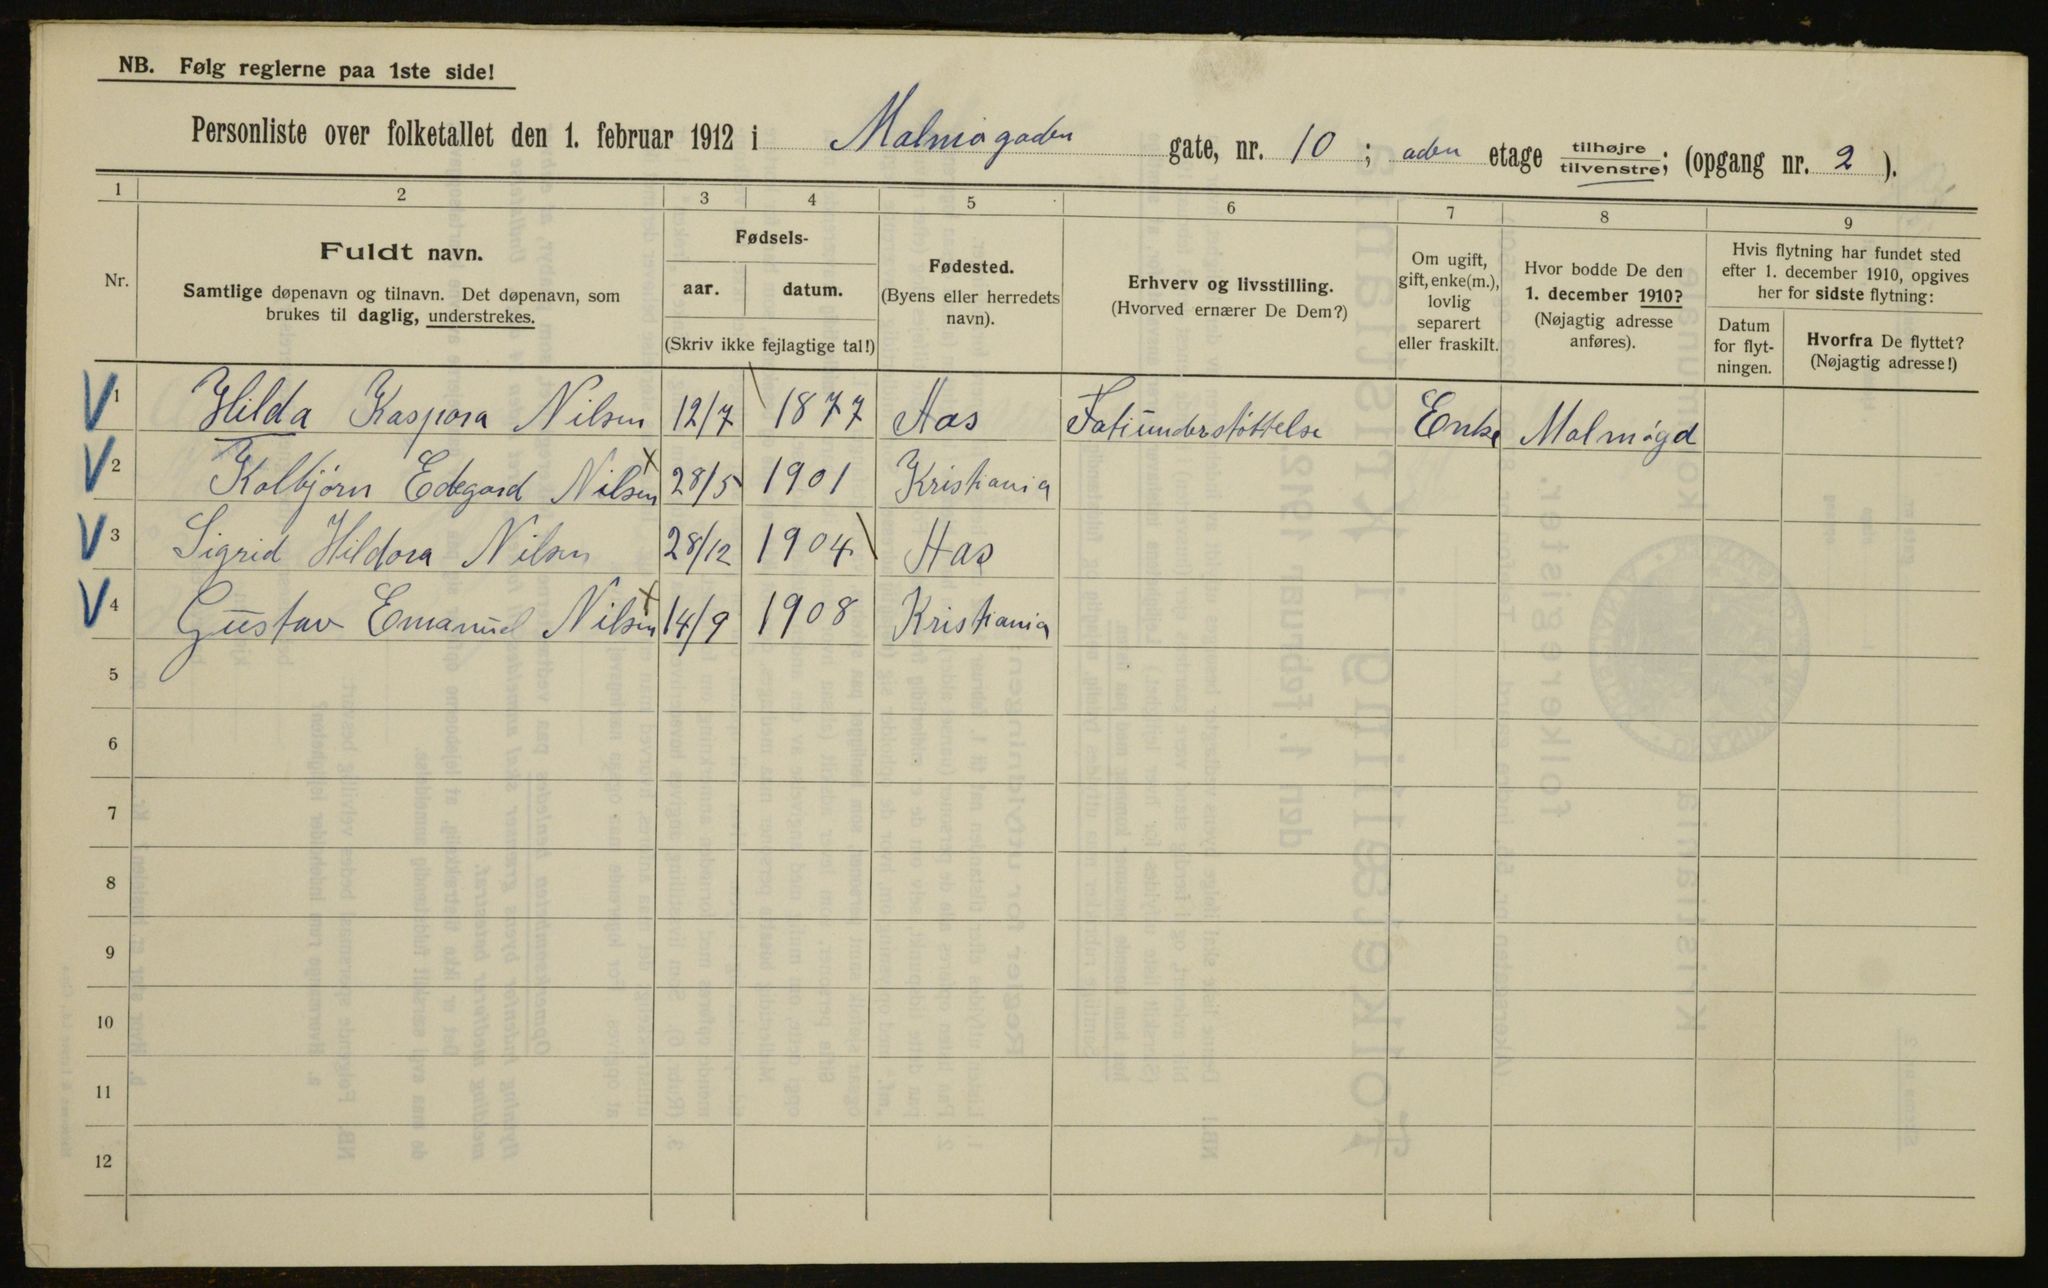 NB. Følg reglerne paa 1ste side!
Personliste over folketallet den 1. februar 1912 i Malmøgaden gate, nr. 10 ; aden etage tilhøjre / tilvenstre; (opgang nr. 2 ).
1 2 3 4 5 6 7 8 9
Nr.
Fuldt navn.
Samtlige døpenavn og tilnavn. Det døpenavn, som
brukes til daglig, understrekes.
Fødsels-
aar. datum.
(Skriv ikke fejlagtige tal!)
Fødested.
(Byens eller herredets
navn).
Erhverv og livsstilling.
(Hvorved ernærer De Dem?)
Om ugift,
gift, enke(m.),
lovlig
separert
eller fraskilt.
Hvor bodde De den
1. december 1910?
(Nøjagtig adresse
anføres).
Hvis flytning har fundet sted
efter 1. december 1910, opgives
her for sidste flytning:
Datum
for flyt-
ningen.
Hvorfra De flyttet?
(Nøjagtig adresse!)
V 1 Hilda Kaspora Nilsen 12/7 1877 Aas Fatiunderstøttelse Enke Malmøgd
V 2 Kolbjørn Edegard Nilsen 28/5 1901 Kristiania
V 3 Sigrid Hildora Nilsen 28/12 1904 Aas
V 4 Gustav Emanuel Nilsen 14/9 1908 Kristiania
5
6
7
8
9
10
11
12